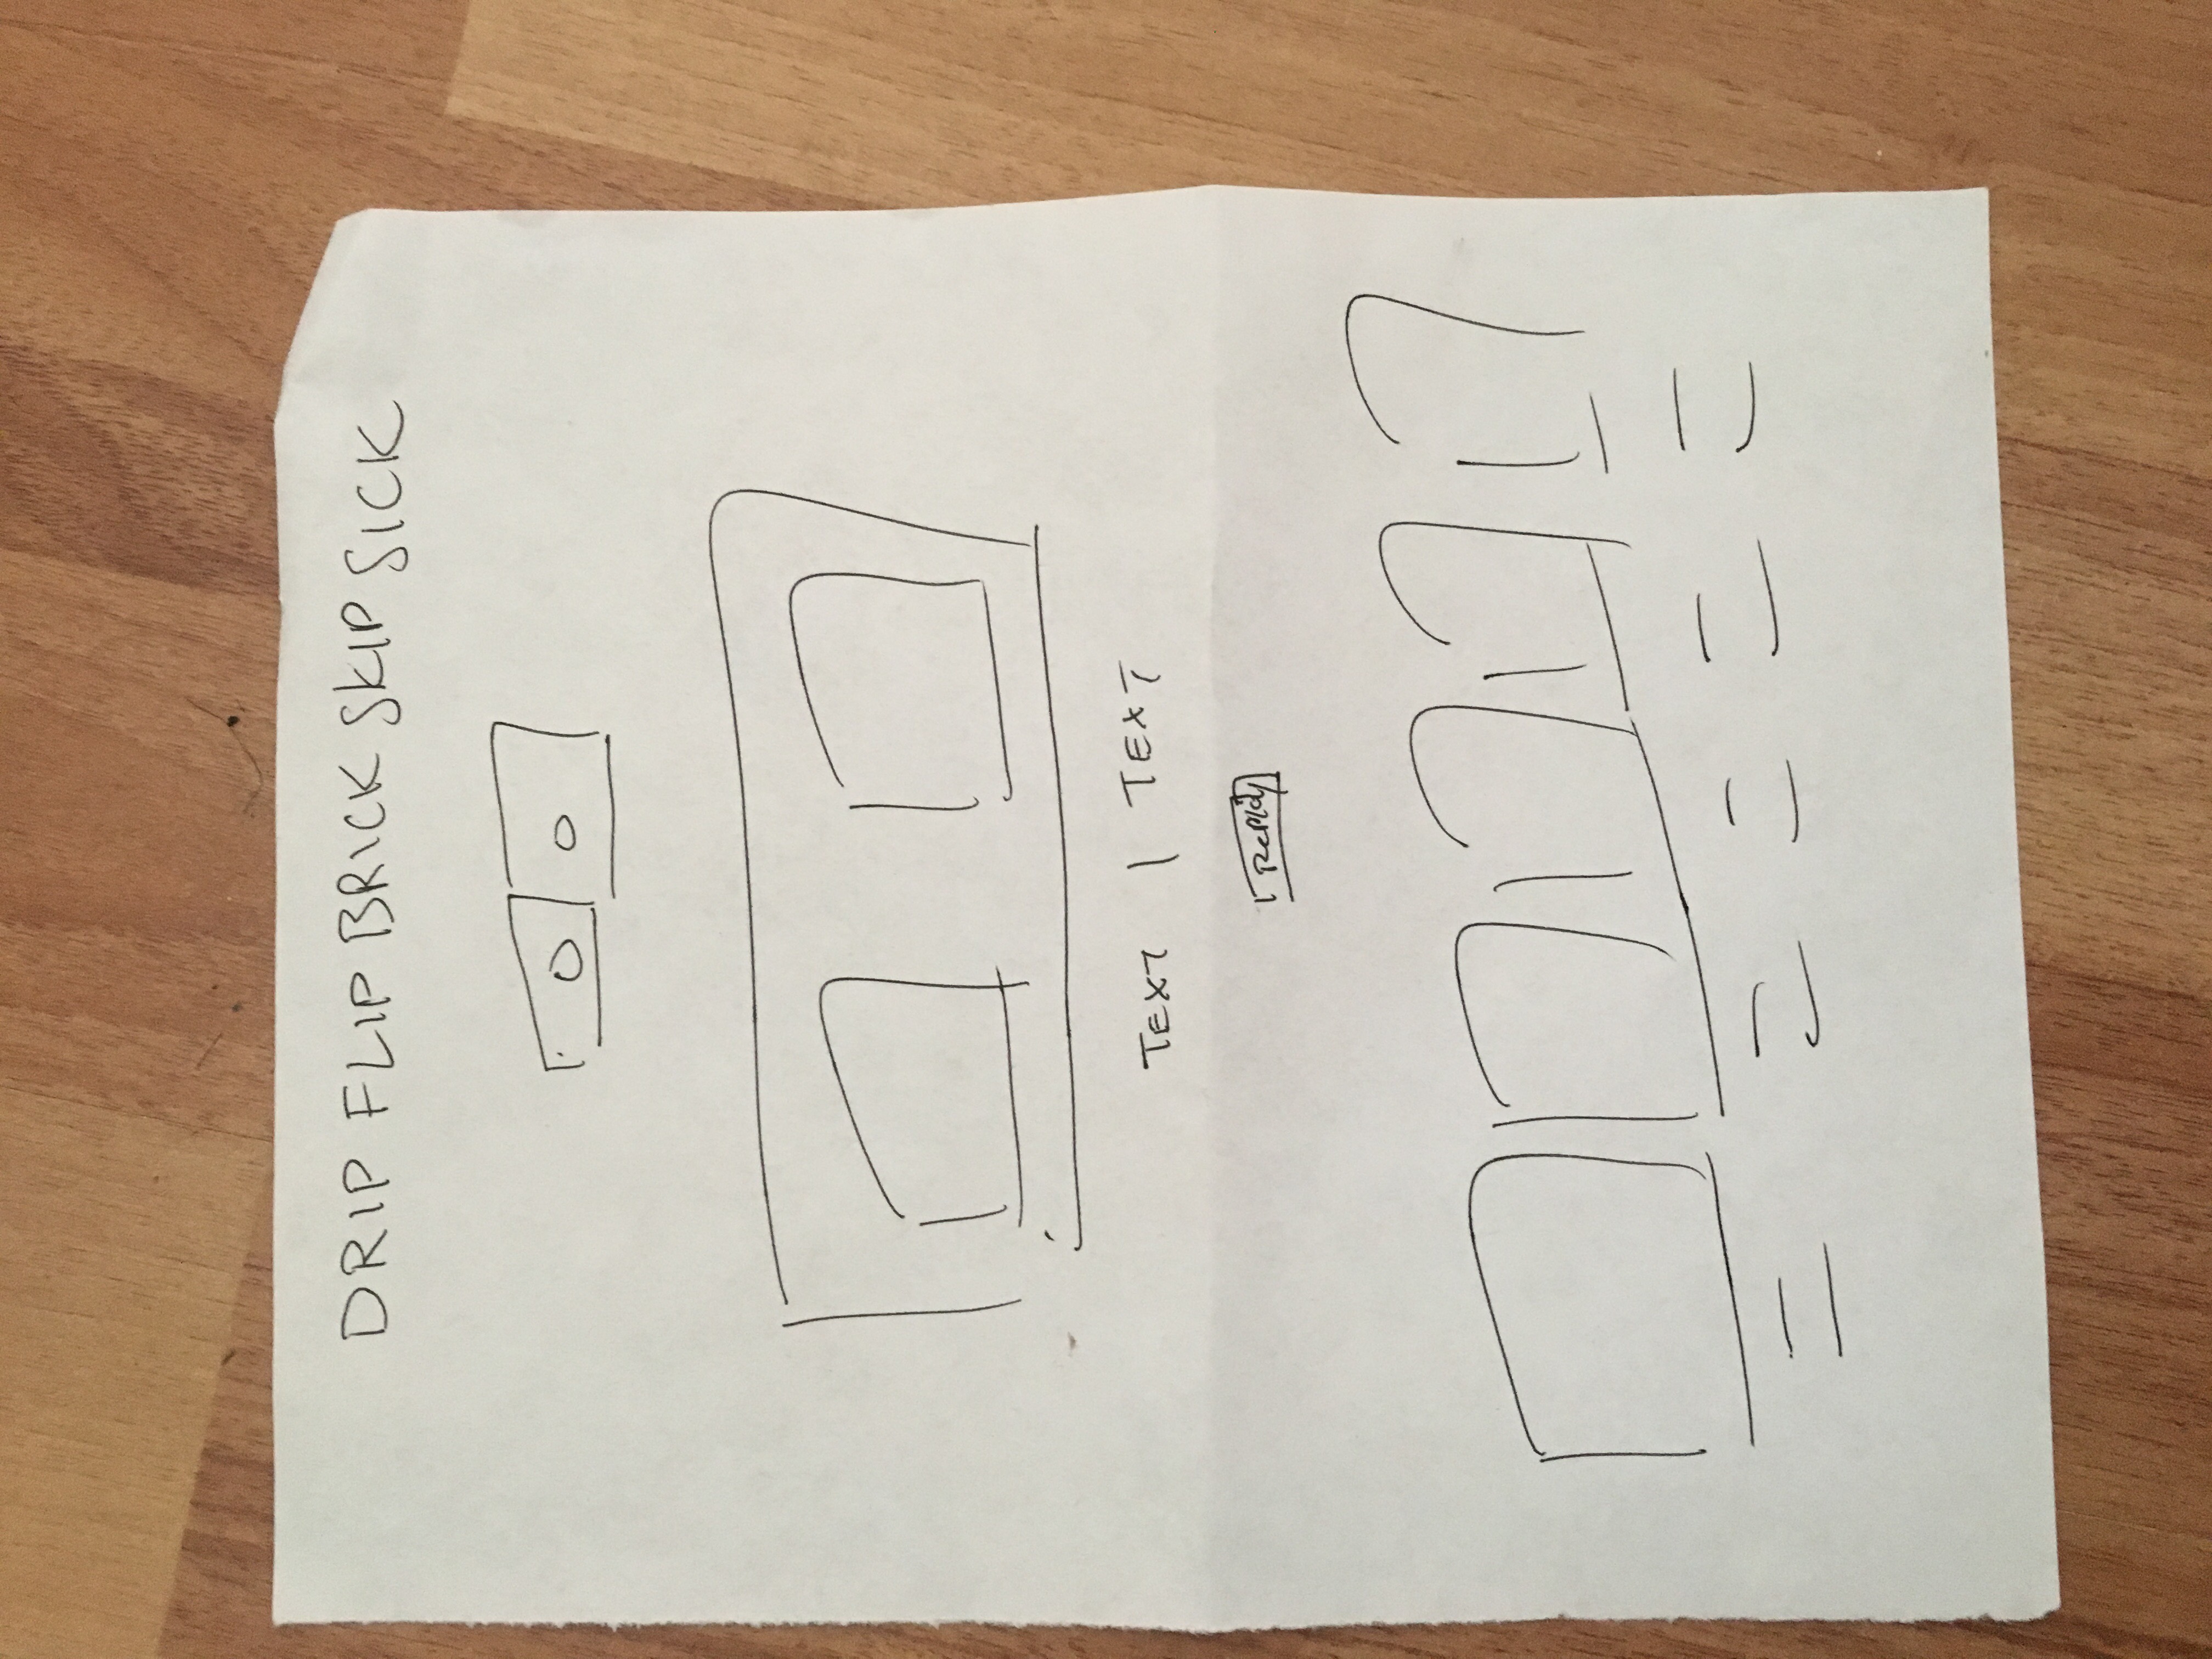 DRIP FLIP BRICK SKIP SICK
0 0
TEXT | TEXT
RePlay